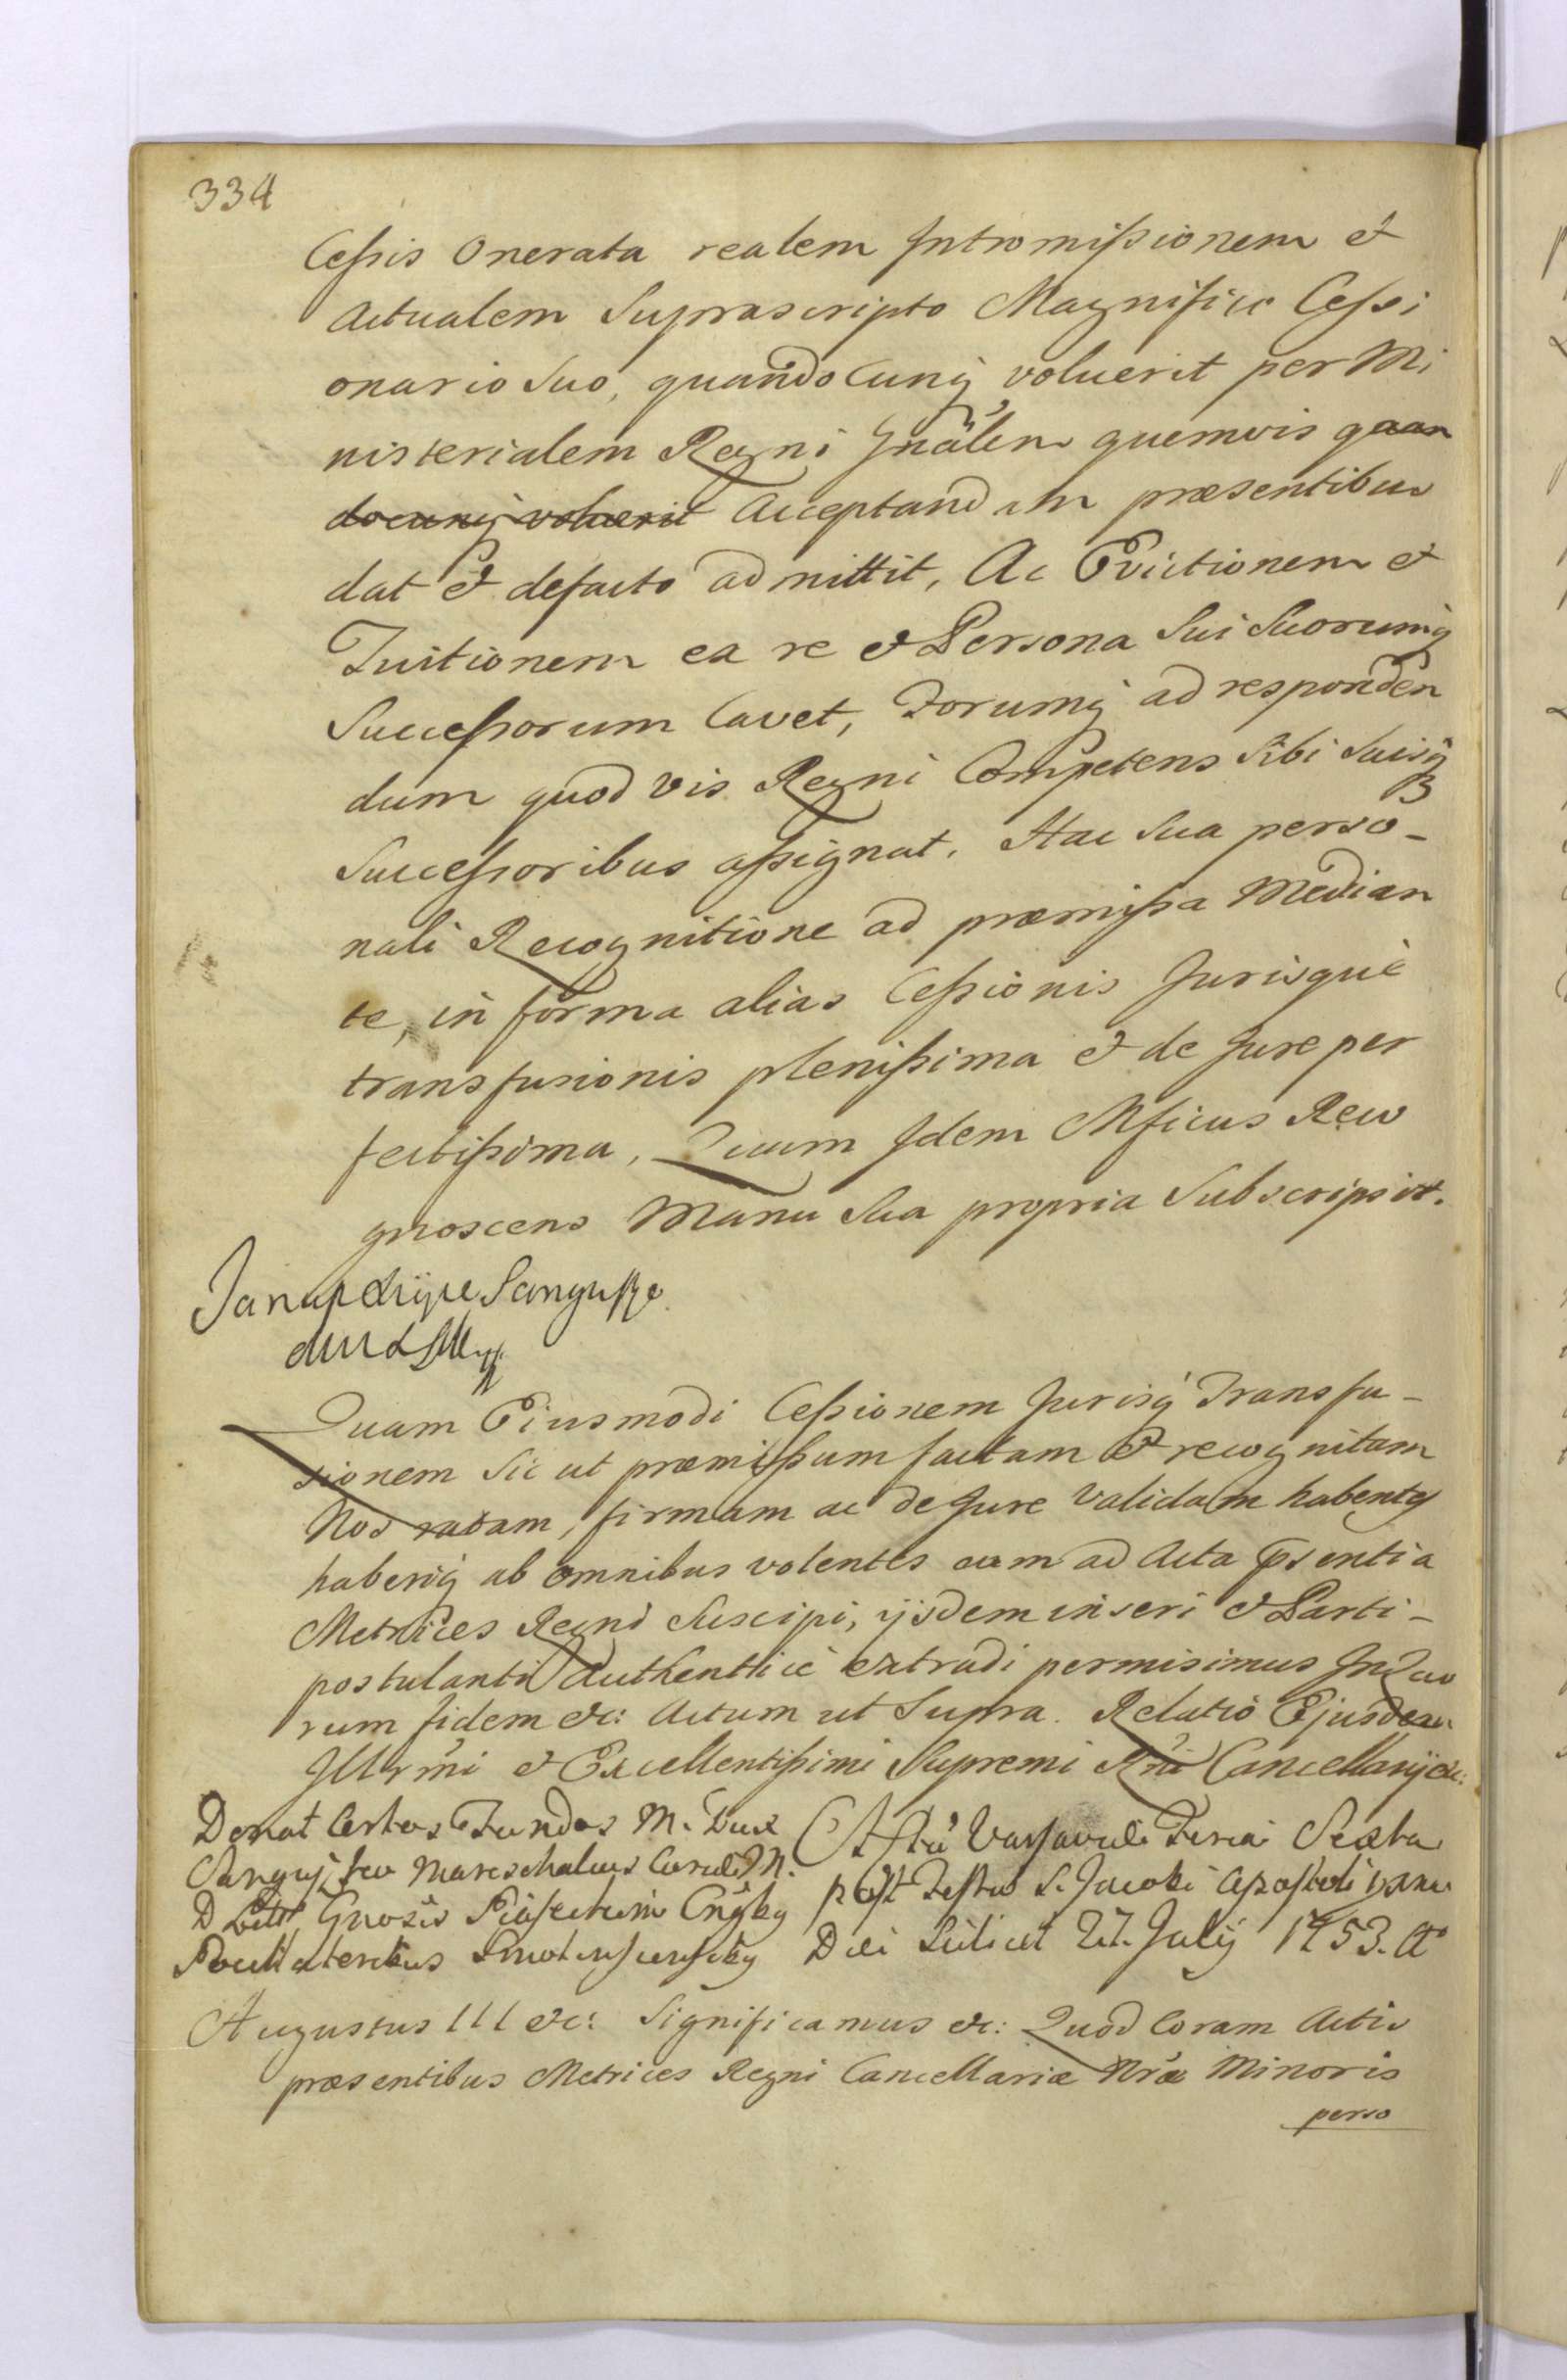 334
Cessis Onerata realem Intromissionem et
Actualem Suprascripto Magnifico Cessi
onario Suo, quandocunq voluerit per Mi
nisterialem Regni Gnalem quemvis quan
docunq voluerit Acceptandam præsentibus
dat et defacto admittit, Ac Evictionem et
Tuitionem ea re et Persona Sui Suorumq
Successorum Cavet, Forumq ad responden
dum quodvis Regni Competens Sibi Suisq
Successoribus assignat. Hac Sua perso-
nali Recognitione ad præmissa Median
te, in forma alias Cessionis Jurisque
transfusionis plenissima et de Jure per
fectissima, Quam Idem Mficus Reco
gnoscens Manu Sua propria Subscripsit.
Quam Eiusmodi Cessionem Jurisq Transfu-
sionem Sic ut præmissum factam et recognitam
Nos ratam, firmam ac de Jure Validam habentes
haberiq ab omnibus volentes eam ad Acta præsentia
Metrices Regni Suscipi, ijsdem inseri et Parti-
postulanti Authentice extradi permisimus In Quo
rum fidem etc: Actum ut Supra. Relatio Ejusdem
Illrmi et Excellentissimi Supremi Rni Cancellarij etc:
Donat Certos Fundos M. Dux
Sangusko Mareschalcus Curiæ M.
D Litt Gnosis
Actu Varsaviæ Feria Sexta
post Festum S. Jacobi Apostoli
Die Scilicet 27. July 1753. Ao
Augustus III etc: Significamus etc: Quod Coram Actis
præsentibus Metrices Regni Cancellariæ Nræ Minoris
perso